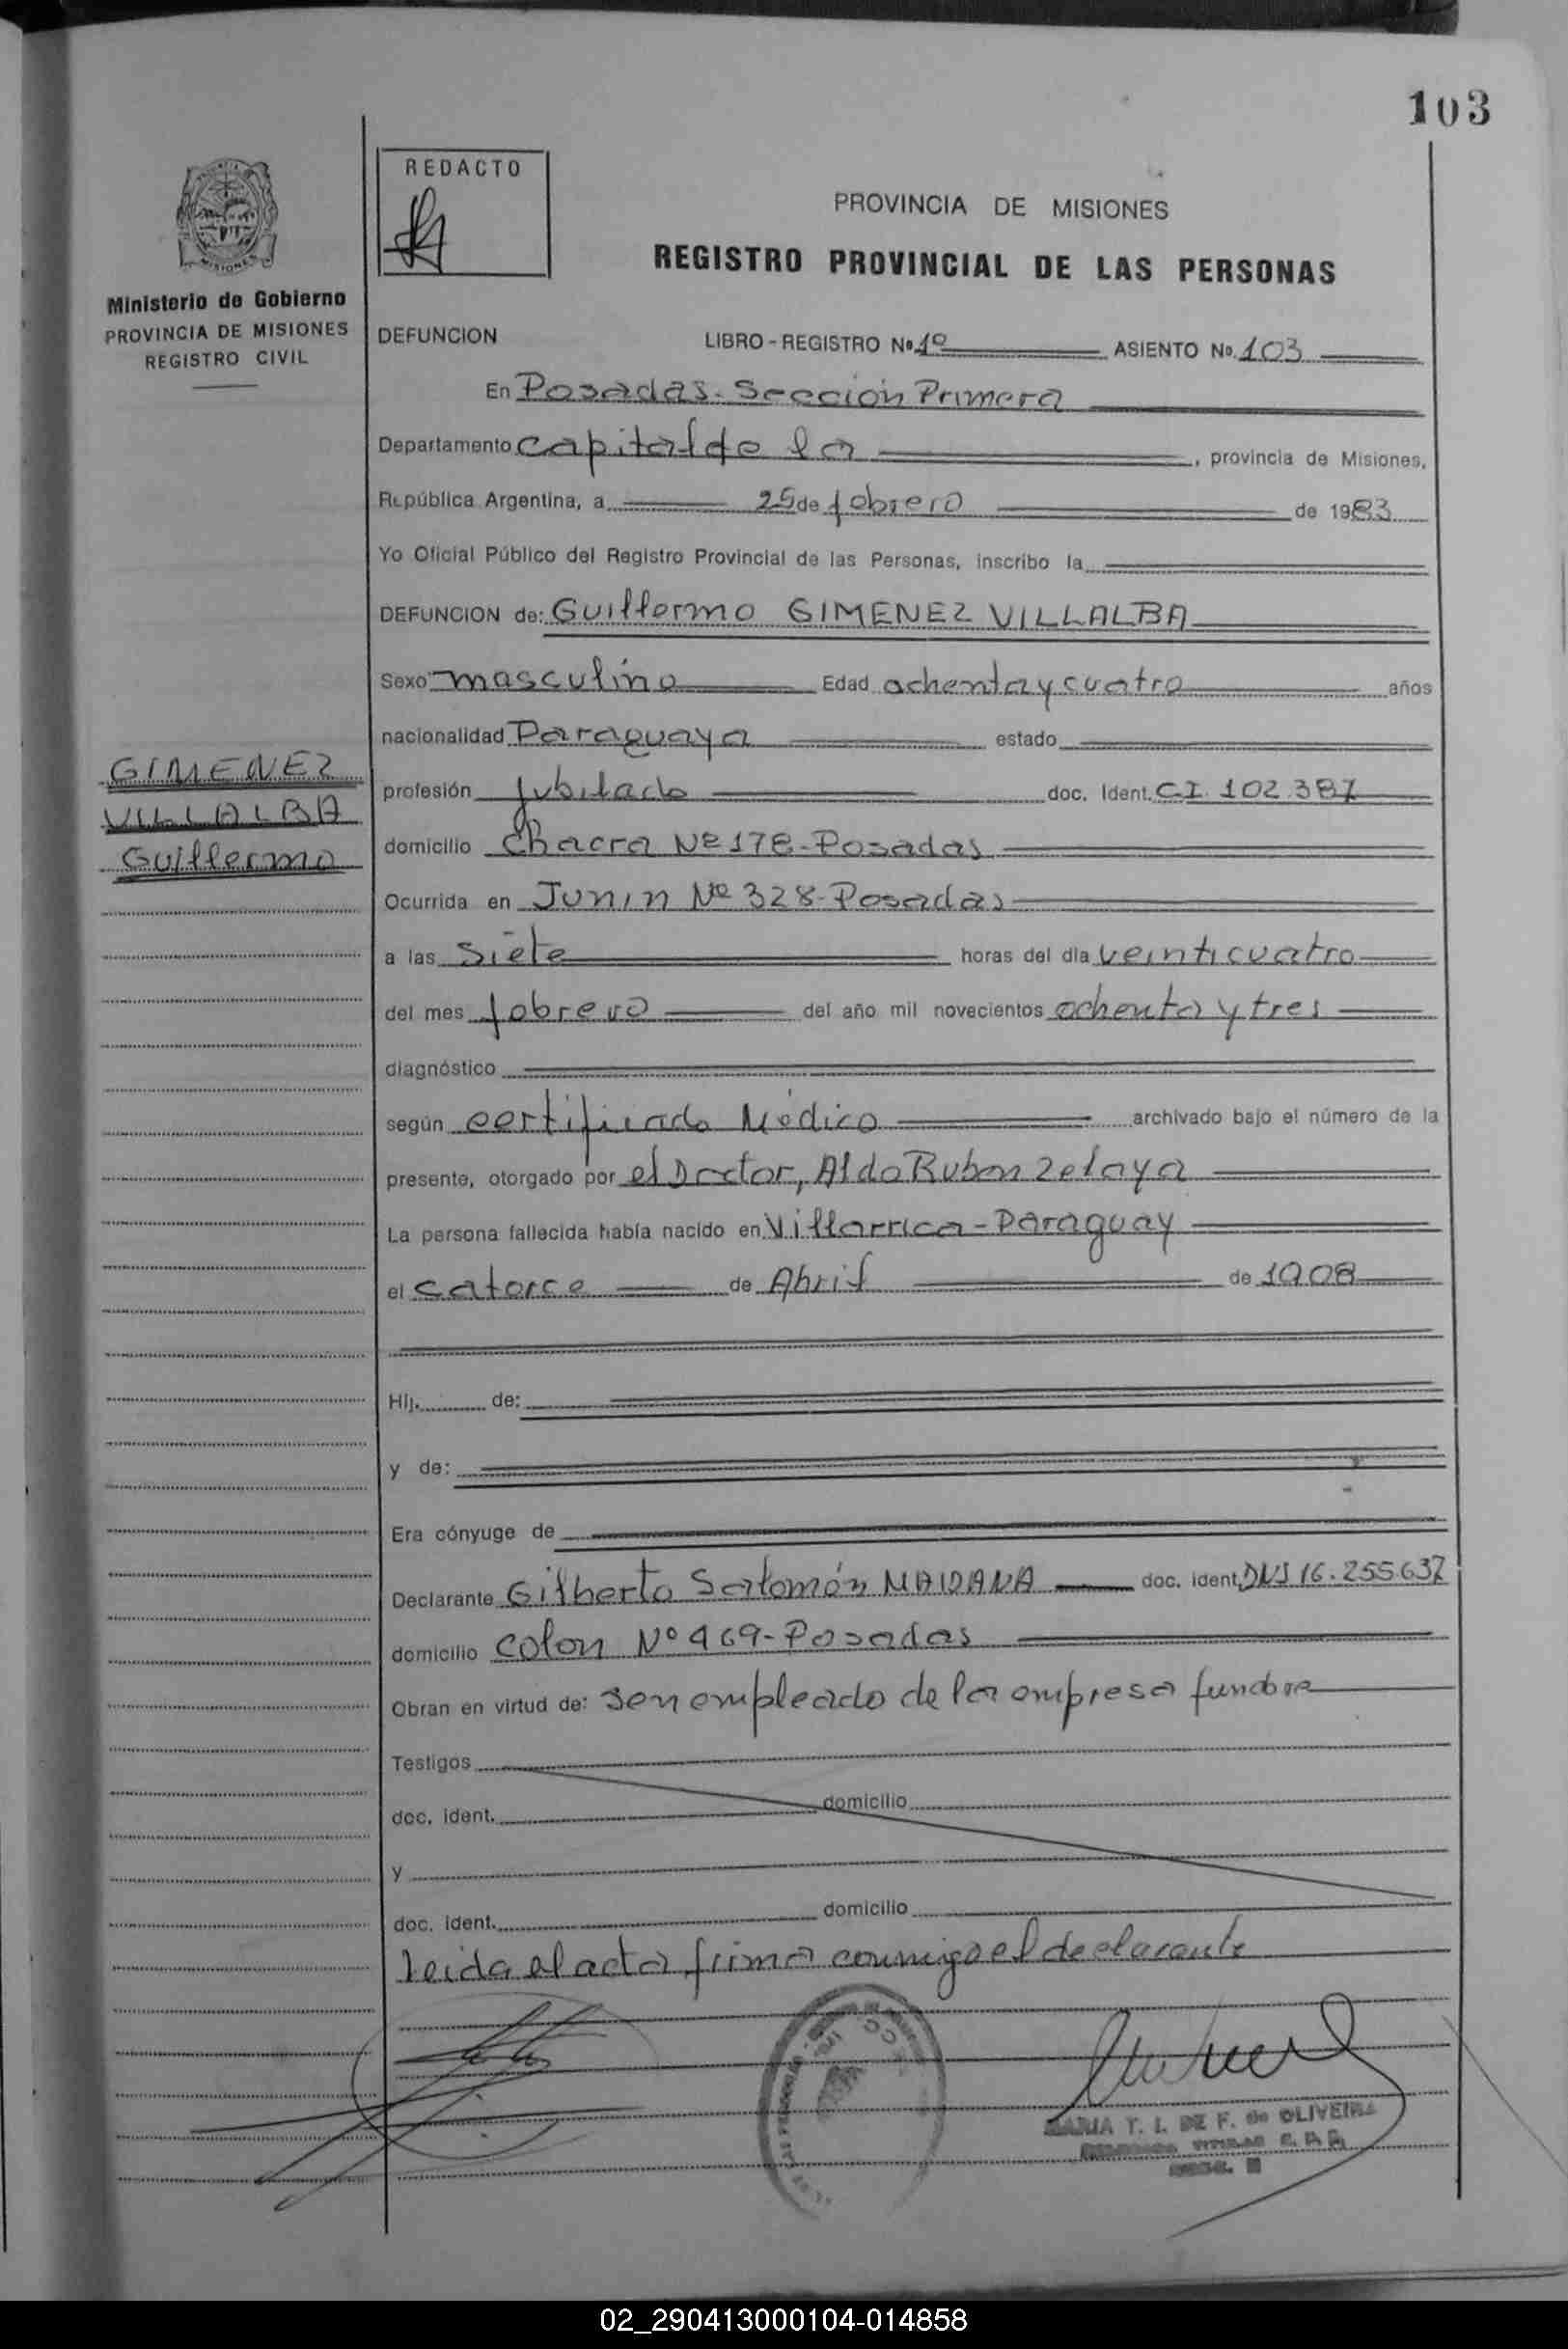 103
REDACTO
PROVINCIA DE MISIONES
REGISTRO PROVINCIAL DE LAS PERSONAS
MISIONES
Ministerio de Gobierno
PROVINCIA DE MISIONES
REGISTRO CIVIL
DEFUNCION LIBRO - REGISTRO Nº 1º ASIENTO Nº 103
En Posadas - Sección Primera
Departamento Capital de la , provincia de Misiones,
República Argentina, a 25 de febrero de 1983
Yo Oficial Público del Registro Provincial de las Personas, inscribo la
DEFUNCION de: Guillermo GIMENEZ VILLALBA
Sexo masculino Edad ochenta y cuatro años
nacionalidad Paraguaya estado
GIMENEZ
VILLALBA
Guillermo
profesión jubilado doc. Ident. C.I. 102.387
domicilio Chacra Nº 178 - Posadas
Ocurrida en Junin Nº 328 - Posadas
a las Siete horas del día veinticuatro
del mes febrero del año mil novecientos ochenta y tres
diagnóstico
según certificado Médico archivado bajo el número de la
presente, otorgado por el Doctor, Aldo Ruben Zelaya
La persona fallecida había nacido en Villarrica - Paraguay
el catorce de Abril de 1908
Hij. de:
y de:
Era cónyuge de
Declarante Gilberto Salomón MAIDANA doc. ident. DNI 16.255.637
domicilio Colon Nº 469 - Posadas
Obran en virtud de: ser empleado de la empresa funebre
Testigos
doc. ident. domicilio
y
doc. ident. domicilio
Leida el acta firma conmigo el declarante
MARIA T. I. DE F. de OLIVEIRA
02_290413000104-014858